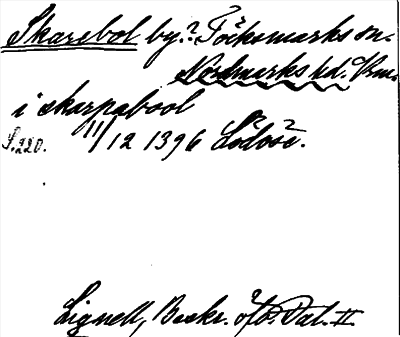 Skarebol by.? Töcksmarks sn.
Nordmarks hd. Vrm.
i skarpabool
S.220. 11/12 1396 Lödöse.
Lignell, Beskr. ö/o. Dal. II.